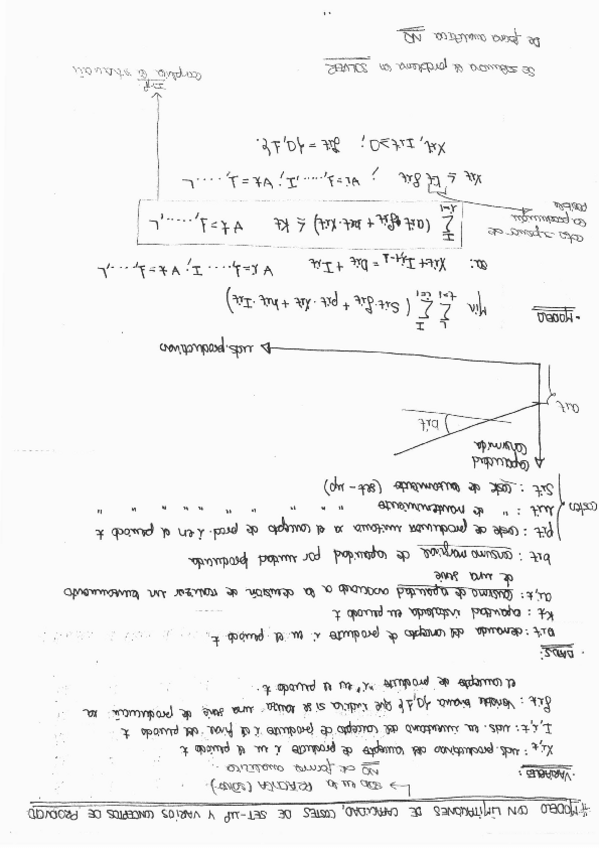 # MODELO CON LIMITACIONES DE CAPACIDAD, COSTES DE SET-UP Y VARIOS CONCEPTOS DE PRODUCTO
↳ solo en la PRÁCTICA (SOLVER).
NO de forma analítica
· VARIABLES:
Xi,t: uds. productivas del concepto de producto i en el periodo t
Ii,t: uds. en inventario del concepto de producto i al final del periodo t
δit: Variable binaria {0,1} que indica si se lanza una serie de producción para
el concepto de producto "i" en el periodo t.
· DATOS:
Dit: demanda del concepto de producto i en el periodo t
Kt: capacidad instalada en periodo t
ai,t: consumo de capacidad asociado a la decisión de realizar un lanzamiento
de una serie
bit: consumo marginal de capacidad por unidad producida
costes
pit: coste de producción unitario para el concepto de prod. i en el periodo t
hit: " de mantenimiento " " " " " " " "
Sit: coste de lanzamiento (set-up)
Capacidad
consumida
bit
ait
uds. productivas
· MODELO
Min Σ(t=1, L) Σ(i=1, I) (Sit·δit + pit·Xit + hit·Iit)
sa: Xit+Ii,t-1 = Dit + Iit ∀i=1,....I; ∀t=1,....,L
Σ(i=1, I) (ait·δit + bit·Xit) ≤ Kt ∀t=1,.....,L
Xit ≤ Ct·δit ; ∀i=1,.....,I; ∀t=1,.....L
cota superior de
la producción
posible
Xit, Iit≥0; δit = {0,1}.
Se soluciona el problema con SOLVER
De forma analítica NO